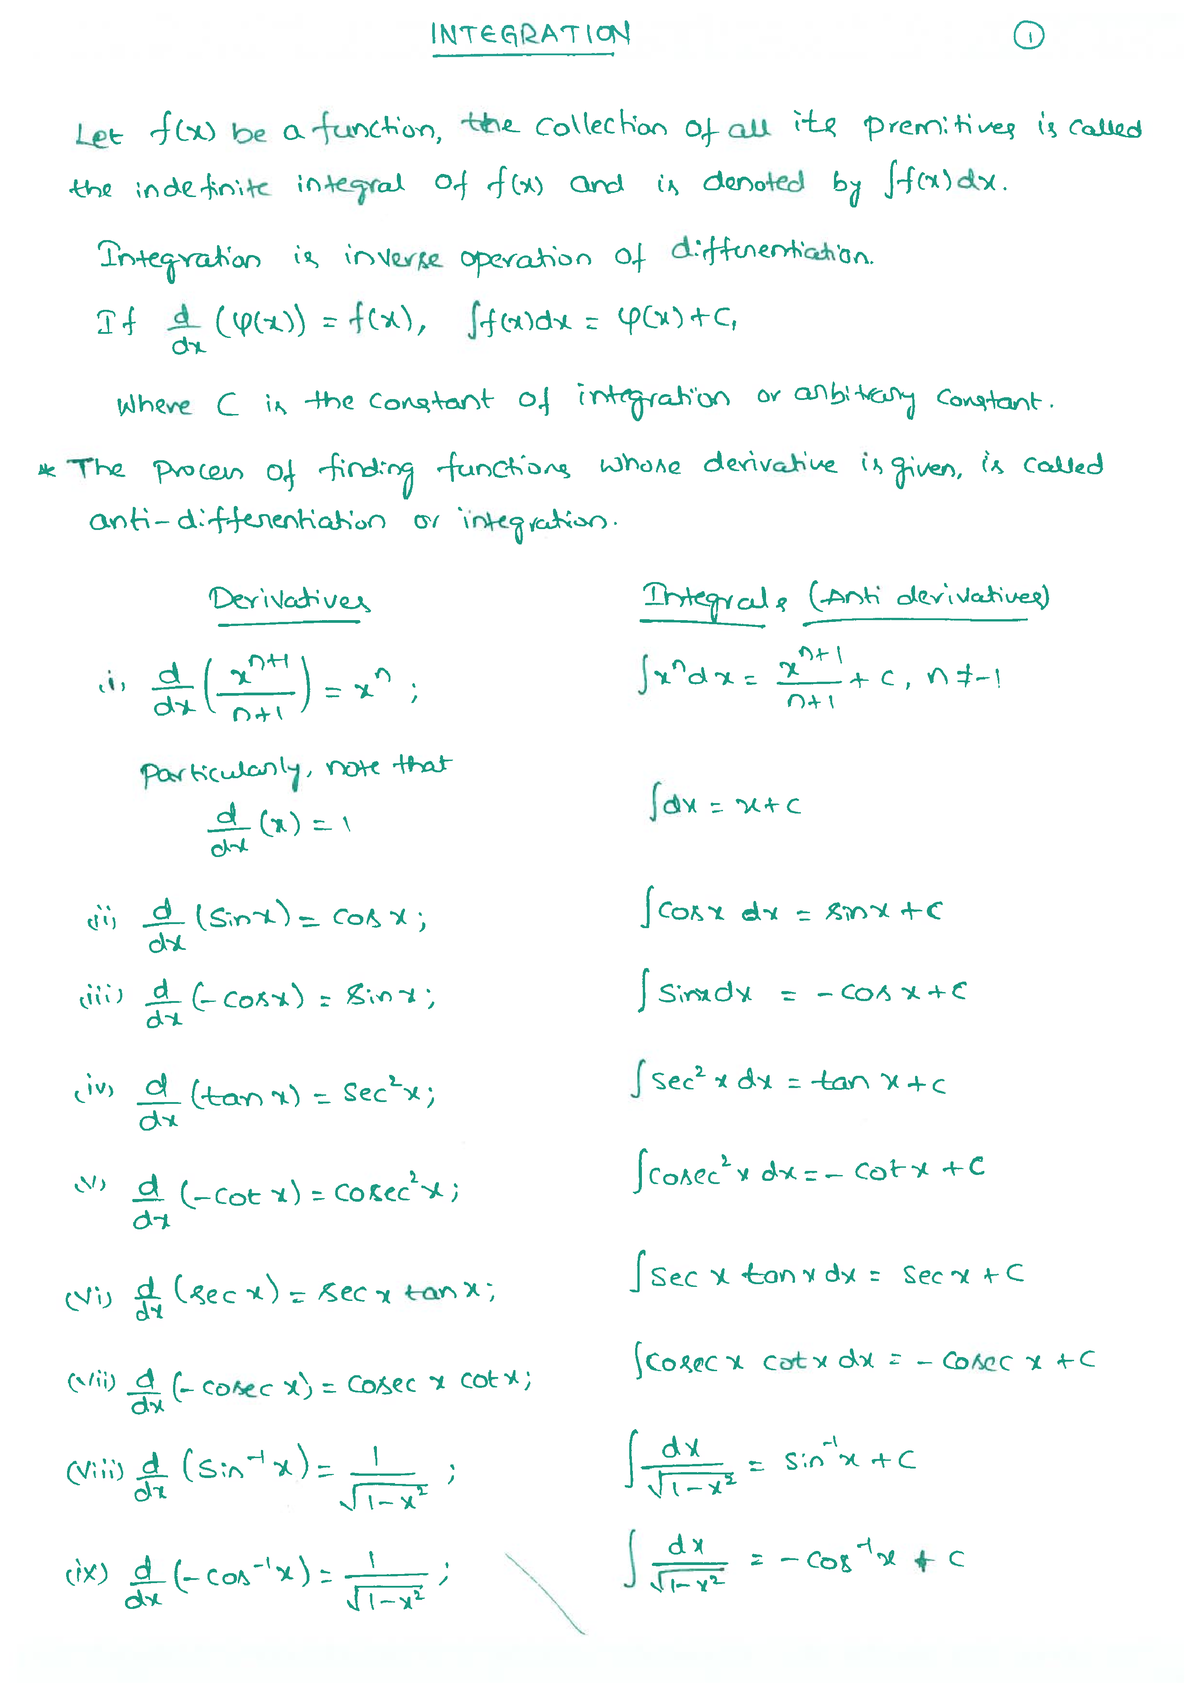 INTEGRATION 1
Let f(x) be a function, the collection of all its premitives is called
the indefinite integral of f(x) and is denoted by ∫f(x)dx.
Integration is inverse operation of differentiation.
If d/dx (φ(x)) = f(x), ∫f(x)dx = φ(x)+C,
where C is the constant of integration or arbitrary constant.
* The process of finding functions whose derivative is given, is called
anti-differentiation or integration.
Derivatives Integrals (Anti derivatives)
(i) d/dx (x^(n+1)/(n+1)) = x^n ; ∫x^n dx = x^(n+1)/(n+1) + c, n≠-1
Particularly, note that
d/dx (x) = 1 ∫dx = x+c
(ii) d/dx (sinx) = cos x; ∫cosx dx = sinx + c
(iii) d/dx (-cosx) = sinx; ∫sinx dx = -cos x + c
(iv) d/dx (tan x) = sec²x; ∫sec² x dx = tan x + c
(v) d/dx (-cot x) = cosec²x; ∫cosec² x dx = - cot x + c
(vi) d/dx (sec x) = sec x tan x; ∫sec x tan x dx = sec x + C
(vii) d/dx (- cosec x) = cosec x cot x; ∫cosec x cot x dx = - cosec x + C
(viii) d/dx (sin⁻¹x) = 1/√(1-x²) ; ∫dx/√(1-x²) = sin⁻¹x + C
(ix) d/dx (-cos⁻¹x) = 1/√(1-x²) ; ∫dx/√(1-x²) = - cos⁻¹x + C